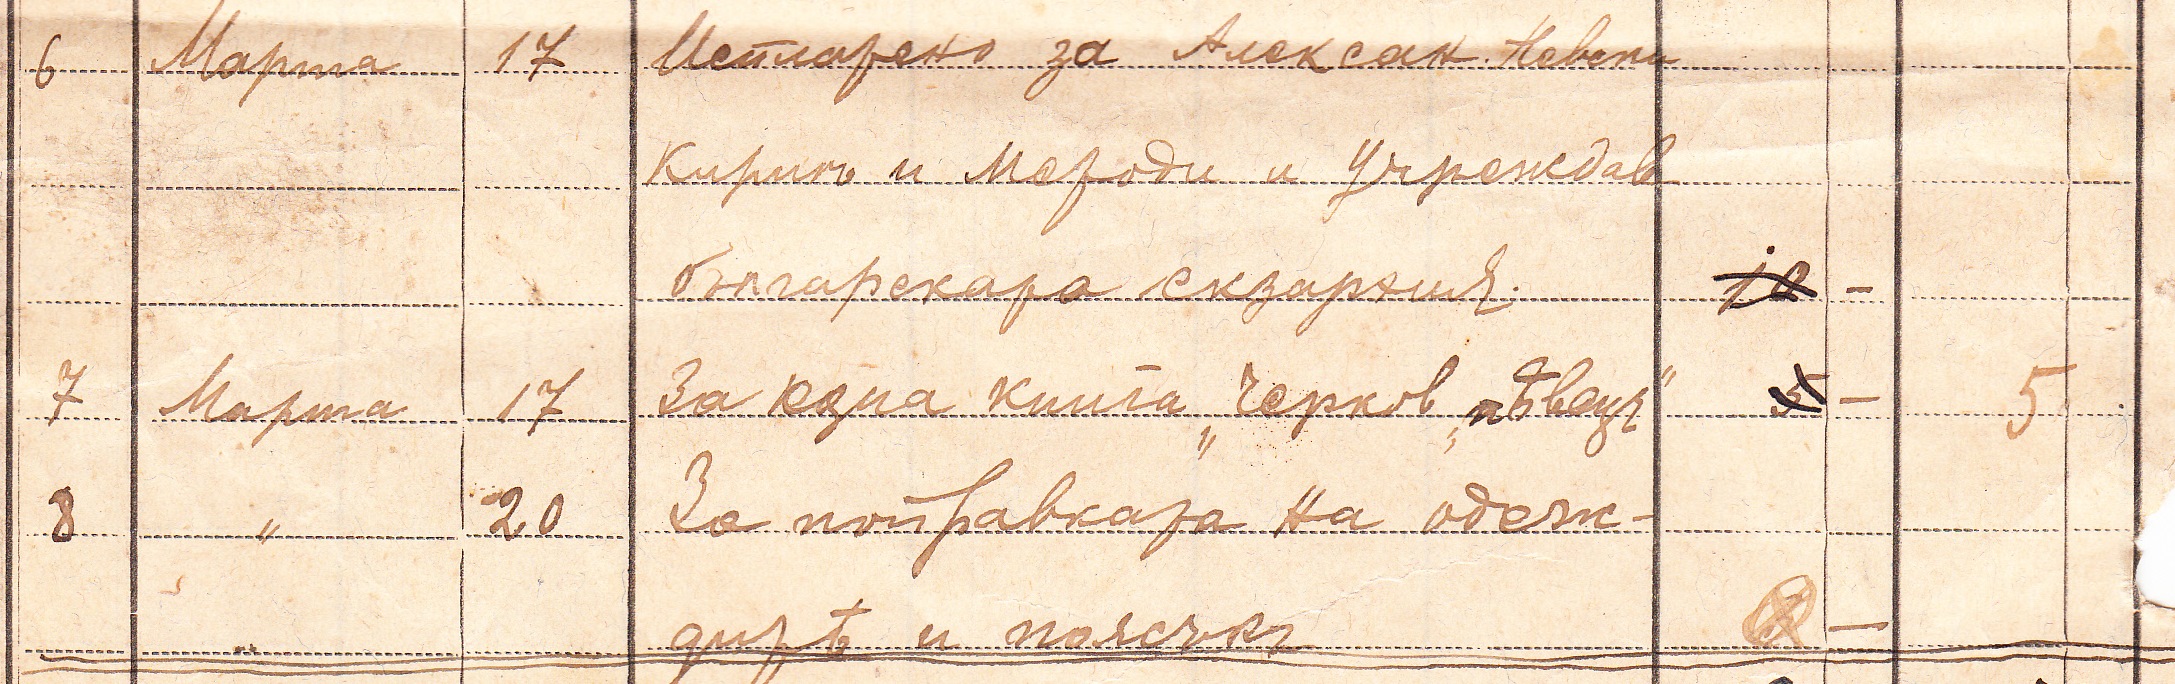 6 Марта 17 Исплатено за Алексан. Невски
Кирилъ и Методи и Учреждав
българската екзархия. 10 -
7 Марта 17 За една книга „Черков „пѣвецъ" 5 - 5
8 " 20 За поправката на одеж-
дитѣ и поясъкъ -